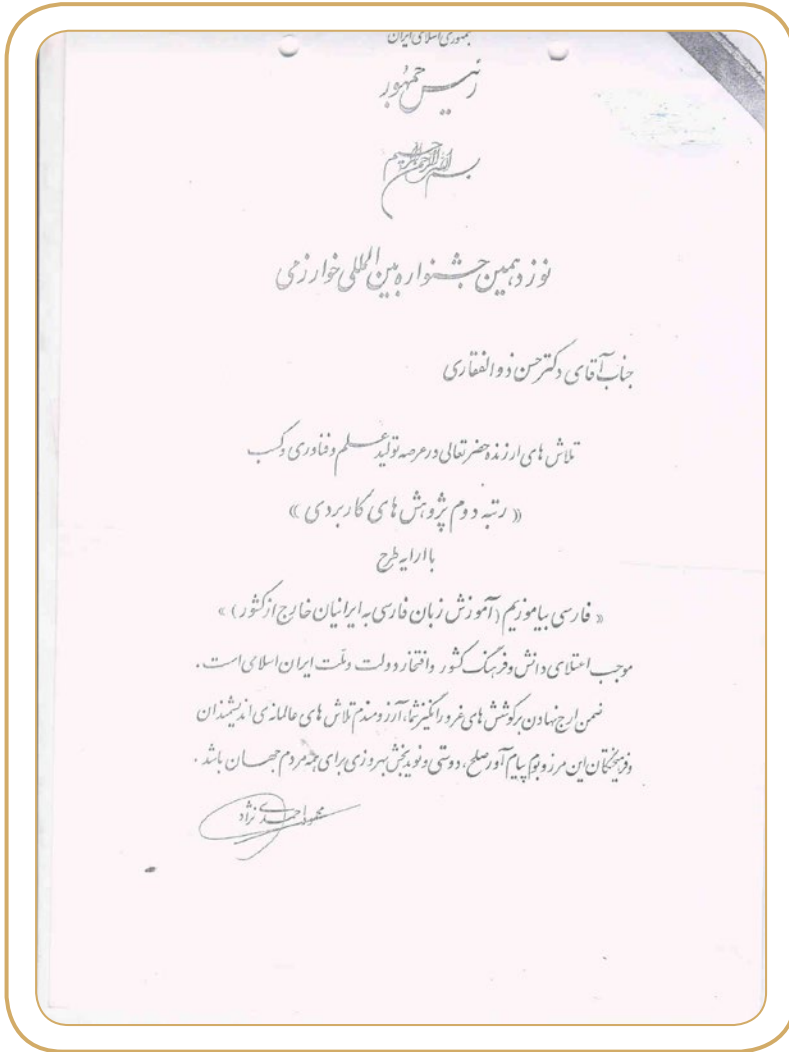 جمهوری اسلامی ایران
رئیس جمهور
بسم الله الرحمن الرحیم
نوزدهمین جشنواره بین المللی خوارزمی
جناب آقای دکتر حسن ذوالفقاری
تلاش های ارزنده حضرتعالی در عرصه تولید علم و فناوری و کسب
« رتبه دوم پژوهش های کاربردی »
با ارایه طرح
« فارسی بیاموزیم (آموزش زبان فارسی به ایرانیان خارج از کشور) »
موجب اعتلای دانش و فرهنگ کشور و افتخار دولت و ملّت ایران اسلامی است .
ضمن ارج نهادن بر کوشش های غرورانگیز شما، آرزومندم تلاش های عالمانه ی اندیشمندان
و فرهیختگان این مرز و بوم پیام آور صلح، دوستی و نویدبخش بهروزی برای همه مردم جهان باشد .
محمود احمدی نژاد